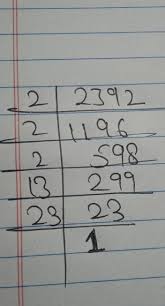 2 2392
2 1196
2 598
13 299
23 23
1